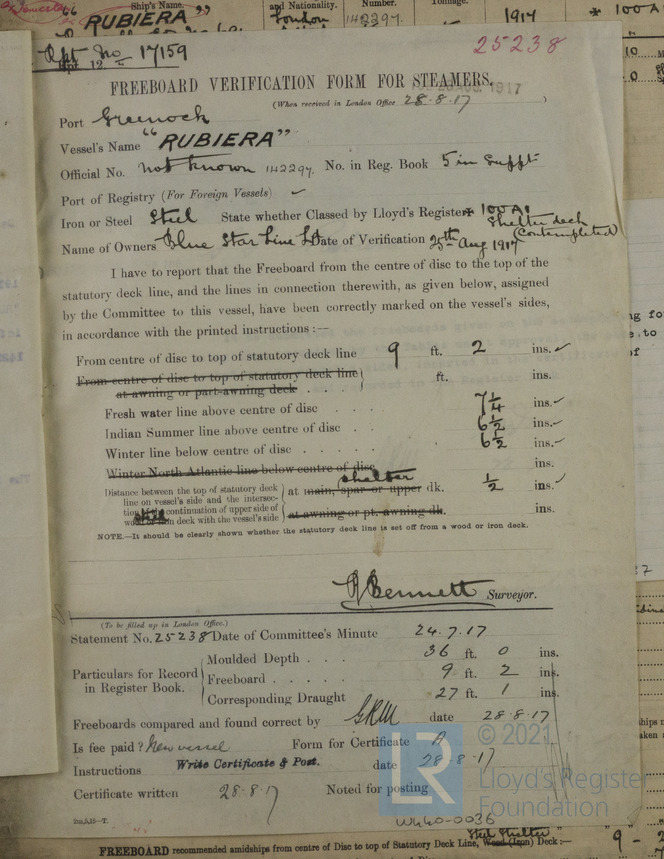 Ship's Name. and Nationality. Number. Tonnage.
"RUBIERA" London 142297. 1917 * 100 A
Rpt No 17159
Rpt 12.
25238
FREEBOARD VERIFICATION FORM FOR STEAMERS.
(When received in London Office 28.8.17 )
Port Greenock
Vessel's Name "RUBIERA"
Official No. not known 142297. No. in Reg. Book 5 in Suppt
Port of Registry (For Foreign Vessels)
Iron or Steel Steel State whether Classed by Lloyd's Register 100 A1
Shelter deck
(Contemplated)
Name of Owners Blue Star Line Ld Date of Verification 25th Aug 1917
I have to report that the Freeboard from the centre of disc to the top of the
statutory deck line, and the lines in connection therewith, as given below, assigned
by the Committee to this vessel, have been correctly marked on the vessel's sides,
in accordance with the printed instructions :—
From centre of disc to top of statutory deck line 9 ft. 2 ins.
From centre of disc to top of statutory deck line ft. ins.
at awning or part-awning deck . . .
Fresh water line above centre of disc . . . . 7 1/4 ins.
Indian Summer line above centre of disc . . 6 1/2 ins.
Winter line below centre of disc . . . . . 6 1/2 ins.
Winter North Atlantic line below centre of disc ins.
shelter
Distance between the top of statutory deck
line on vessel's side and the intersec- at main, spar or upper dk. 1/2 ins.
tion of continuation of upper side of
wood or iron deck with the vessel's side at awning or pt. awning dk. ins.
NOTE.—It should be clearly shown whether the statutory deck line is set off from a wood or iron deck.
Bennett Surveyor.
(To be filled up in London Office.)
Statement No. 25238 Date of Committee's Minute 24.7.17
Particulars for Record in Register Book.
Moulded Depth . . . 36 ft. 0 ins.
Freeboard . . . . . 9 ft. 2 ins.
Corresponding Draught 27 ft. 1 ins.
Freeboards compared and found correct by date 28.8.17
Is fee paid? New vessel Form for Certificate A
Instructions Write Certificate & Post. date 28.8.17
Certificate written 28.8.17 Noted for posting
© 2021
LR Lloyd's Register
Foundation
W440-0036
Steel Shelter
FREEBOARD recommended amidships from centre of Disc to top of Statutory Deck Line, Wood (Iron) Deck :— 9 - 2